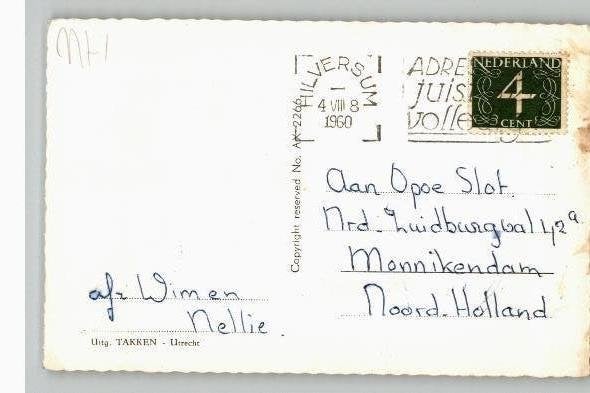 HILVERSUM
4 VIII 8
1960
NEDERLAND
4
CENT
Copyright reserved No. AX 2266
Aan Opoe Slot.
Nrd. Zuidburgwal 42a
Monnikendam
Noord-Holland
afz Wim en
Nellie.
Uitg. TAKKEN - Utrecht